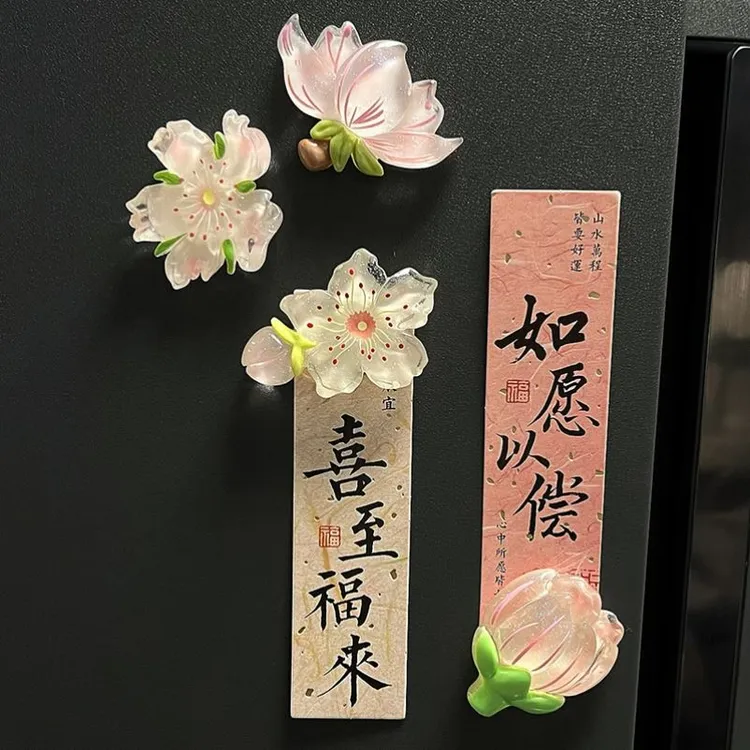 山水萬程
皆要好運
如愿以偿
福
心中所愿皆
宜
喜至福來
福